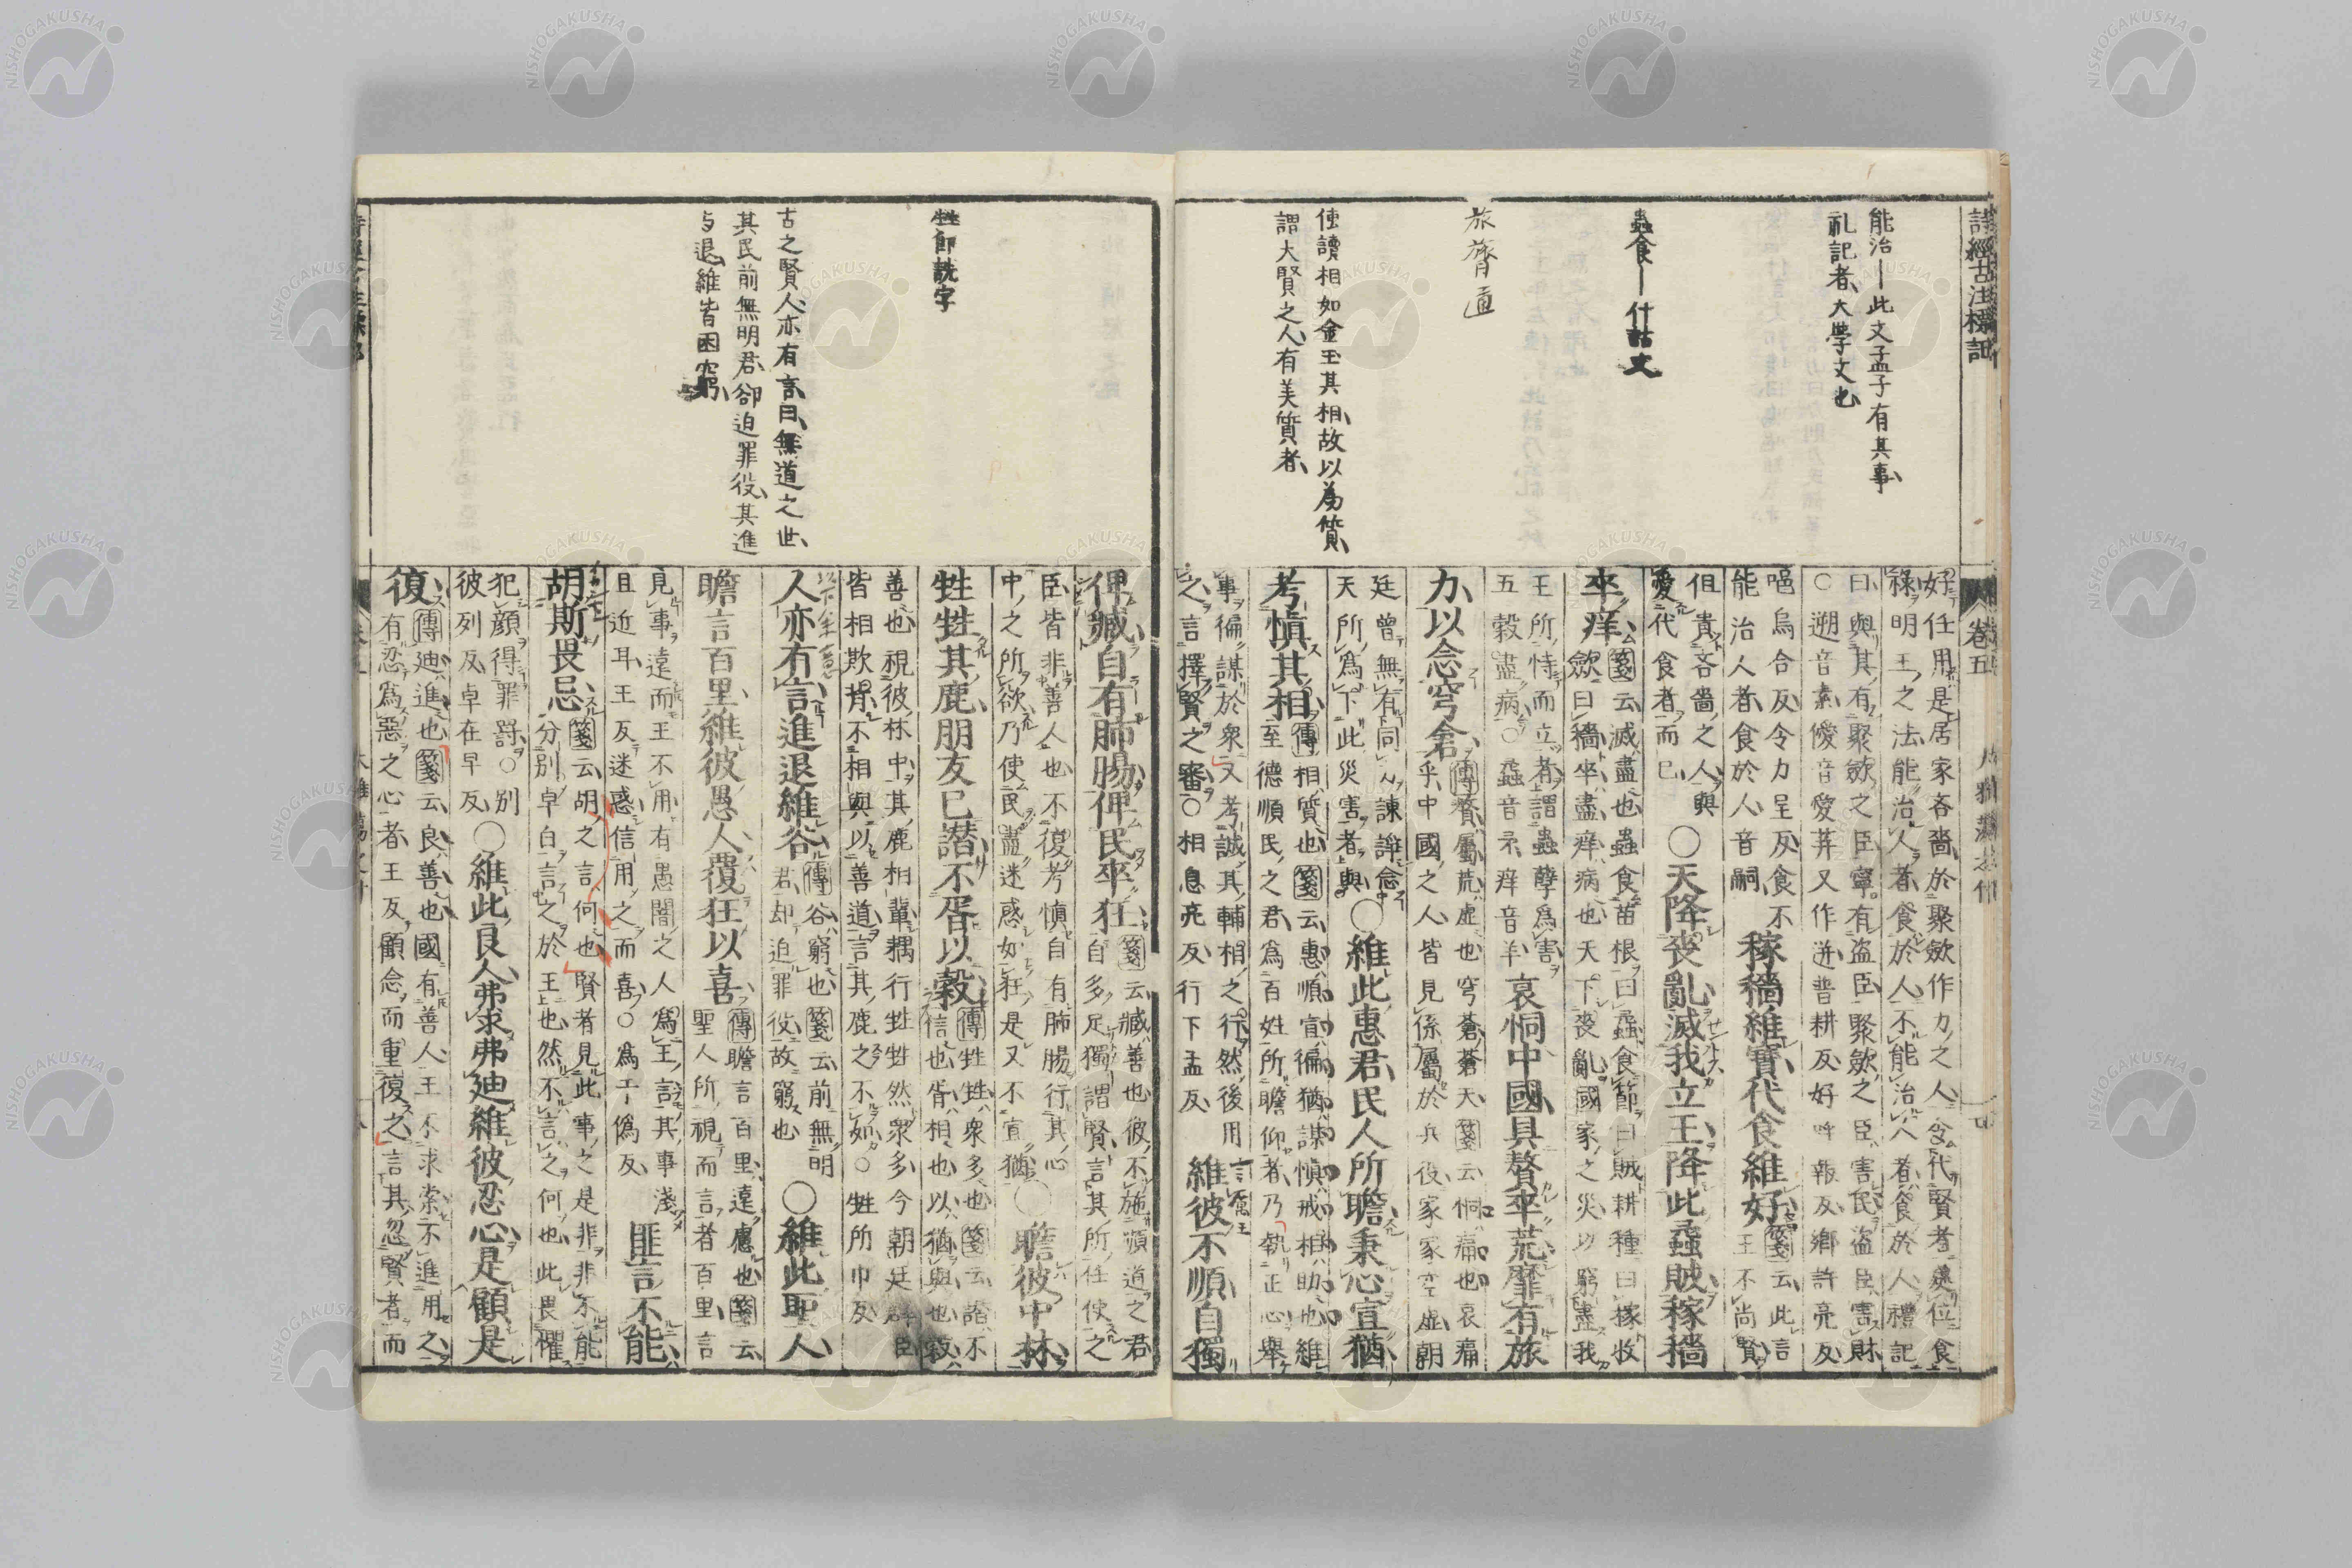 詩經古注標註
卷五
能治—此文孟子有其事
礼記者大學文也
蟲食—什詁文
旅膂通
使讀相如金玉其相故以為質
謂大賢之人有美質者
好任用是居家吝嗇於聚斂作力之人令代賢者處位食
祿明王之法能治人者食於人不能治人者食於人禮記
曰與其有聚斂之臣寧有盜臣聚斂之臣害民盜臣害財
○遡音素僾音愛荓又作迸普耕反好呼報反鄉許亮反
唈烏合反令力呈反食不
能治人者食於人音嗣
稼穡維寶代食維好
箋云此言
王不尚賢
但貴吝嗇之人與
愛代食者而已
○天降喪亂滅我立王降此蟊賊稼穡
卒痒
箋云滅盡也蟲食苗根曰蟊食節曰賊耕種曰稼收
斂曰穡卒盡痒病也天下喪亂國家之災以窮盡我
王所恃而立者謂蟲孽為害
五穀盡病○蟊音矛痒音羊
哀恫中國具贅卒荒靡有旅
力以念穹倉
傳贅屬荒虛也穹蒼蒼天箋云恫痛也哀痛
乎中國之人皆見係屬於兵役家家空虛朝
廷曾無有同力諫諍念
天所為下此災害者與
○維此惠君民人所瞻秉心宣猶
考慎其相
傳相質也箋云惠順宣徧猶謀慎戒相助也維
至德順民之君為百姓所瞻仰者乃執正心舉
事徧謀於衆又考誠其輔相之行然後用
之言擇賢之審○相息亮反行下孟反
維彼不順自獨
言厲王
牲即詵字
古之賢人亦有言曰無道之世
其民前無明君卻迫罪役其進
与退維皆困窮
俾臧自有肺腸俾民卒狂
箋云臧善也彼不施順道之君
自多足獨謂賢言其所任使之
臣皆非善人也不復考慎自有肺腸行其心
中之所欲乃使民盡迷惑如狂是又不宣猶
○瞻彼中林
甡甡其鹿朋友已譖不胥以穀
傳甡甡衆多也箋云譖不
信也胥相也以猶與也穀
善也視彼林中其鹿相輩耦行甡甡然衆多今朝廷群臣
皆相欺背不相與以善道言其鹿之不如○甡所巾反
人亦有言進退維谷
傳谷窮也箋云前無明
君却迫罪役故窮也
○維此聖人
瞻言百里維彼愚人覆狂以喜
傳瞻言百里遠慮也箋云
聖人所視而言者百里言
見事遠而王不用有愚闇之人為王言其事淺
且近耳王反迷惑信用之而喜○為于偽反
匪言不能
胡斯畏忌
箋云胡之言何也賢者見此事之是非非不能
分別卓白言之於王也然不言之何也此畏懼
犯顏得罪罰○別
彼列反卓在早反
○維此良人弗求弗迪維彼忍心是顧是
復
傳迪進也箋云良善也國有善人王不求索不進用之
有忍為惡之心者王反顧念而重復之言其忽賢者而